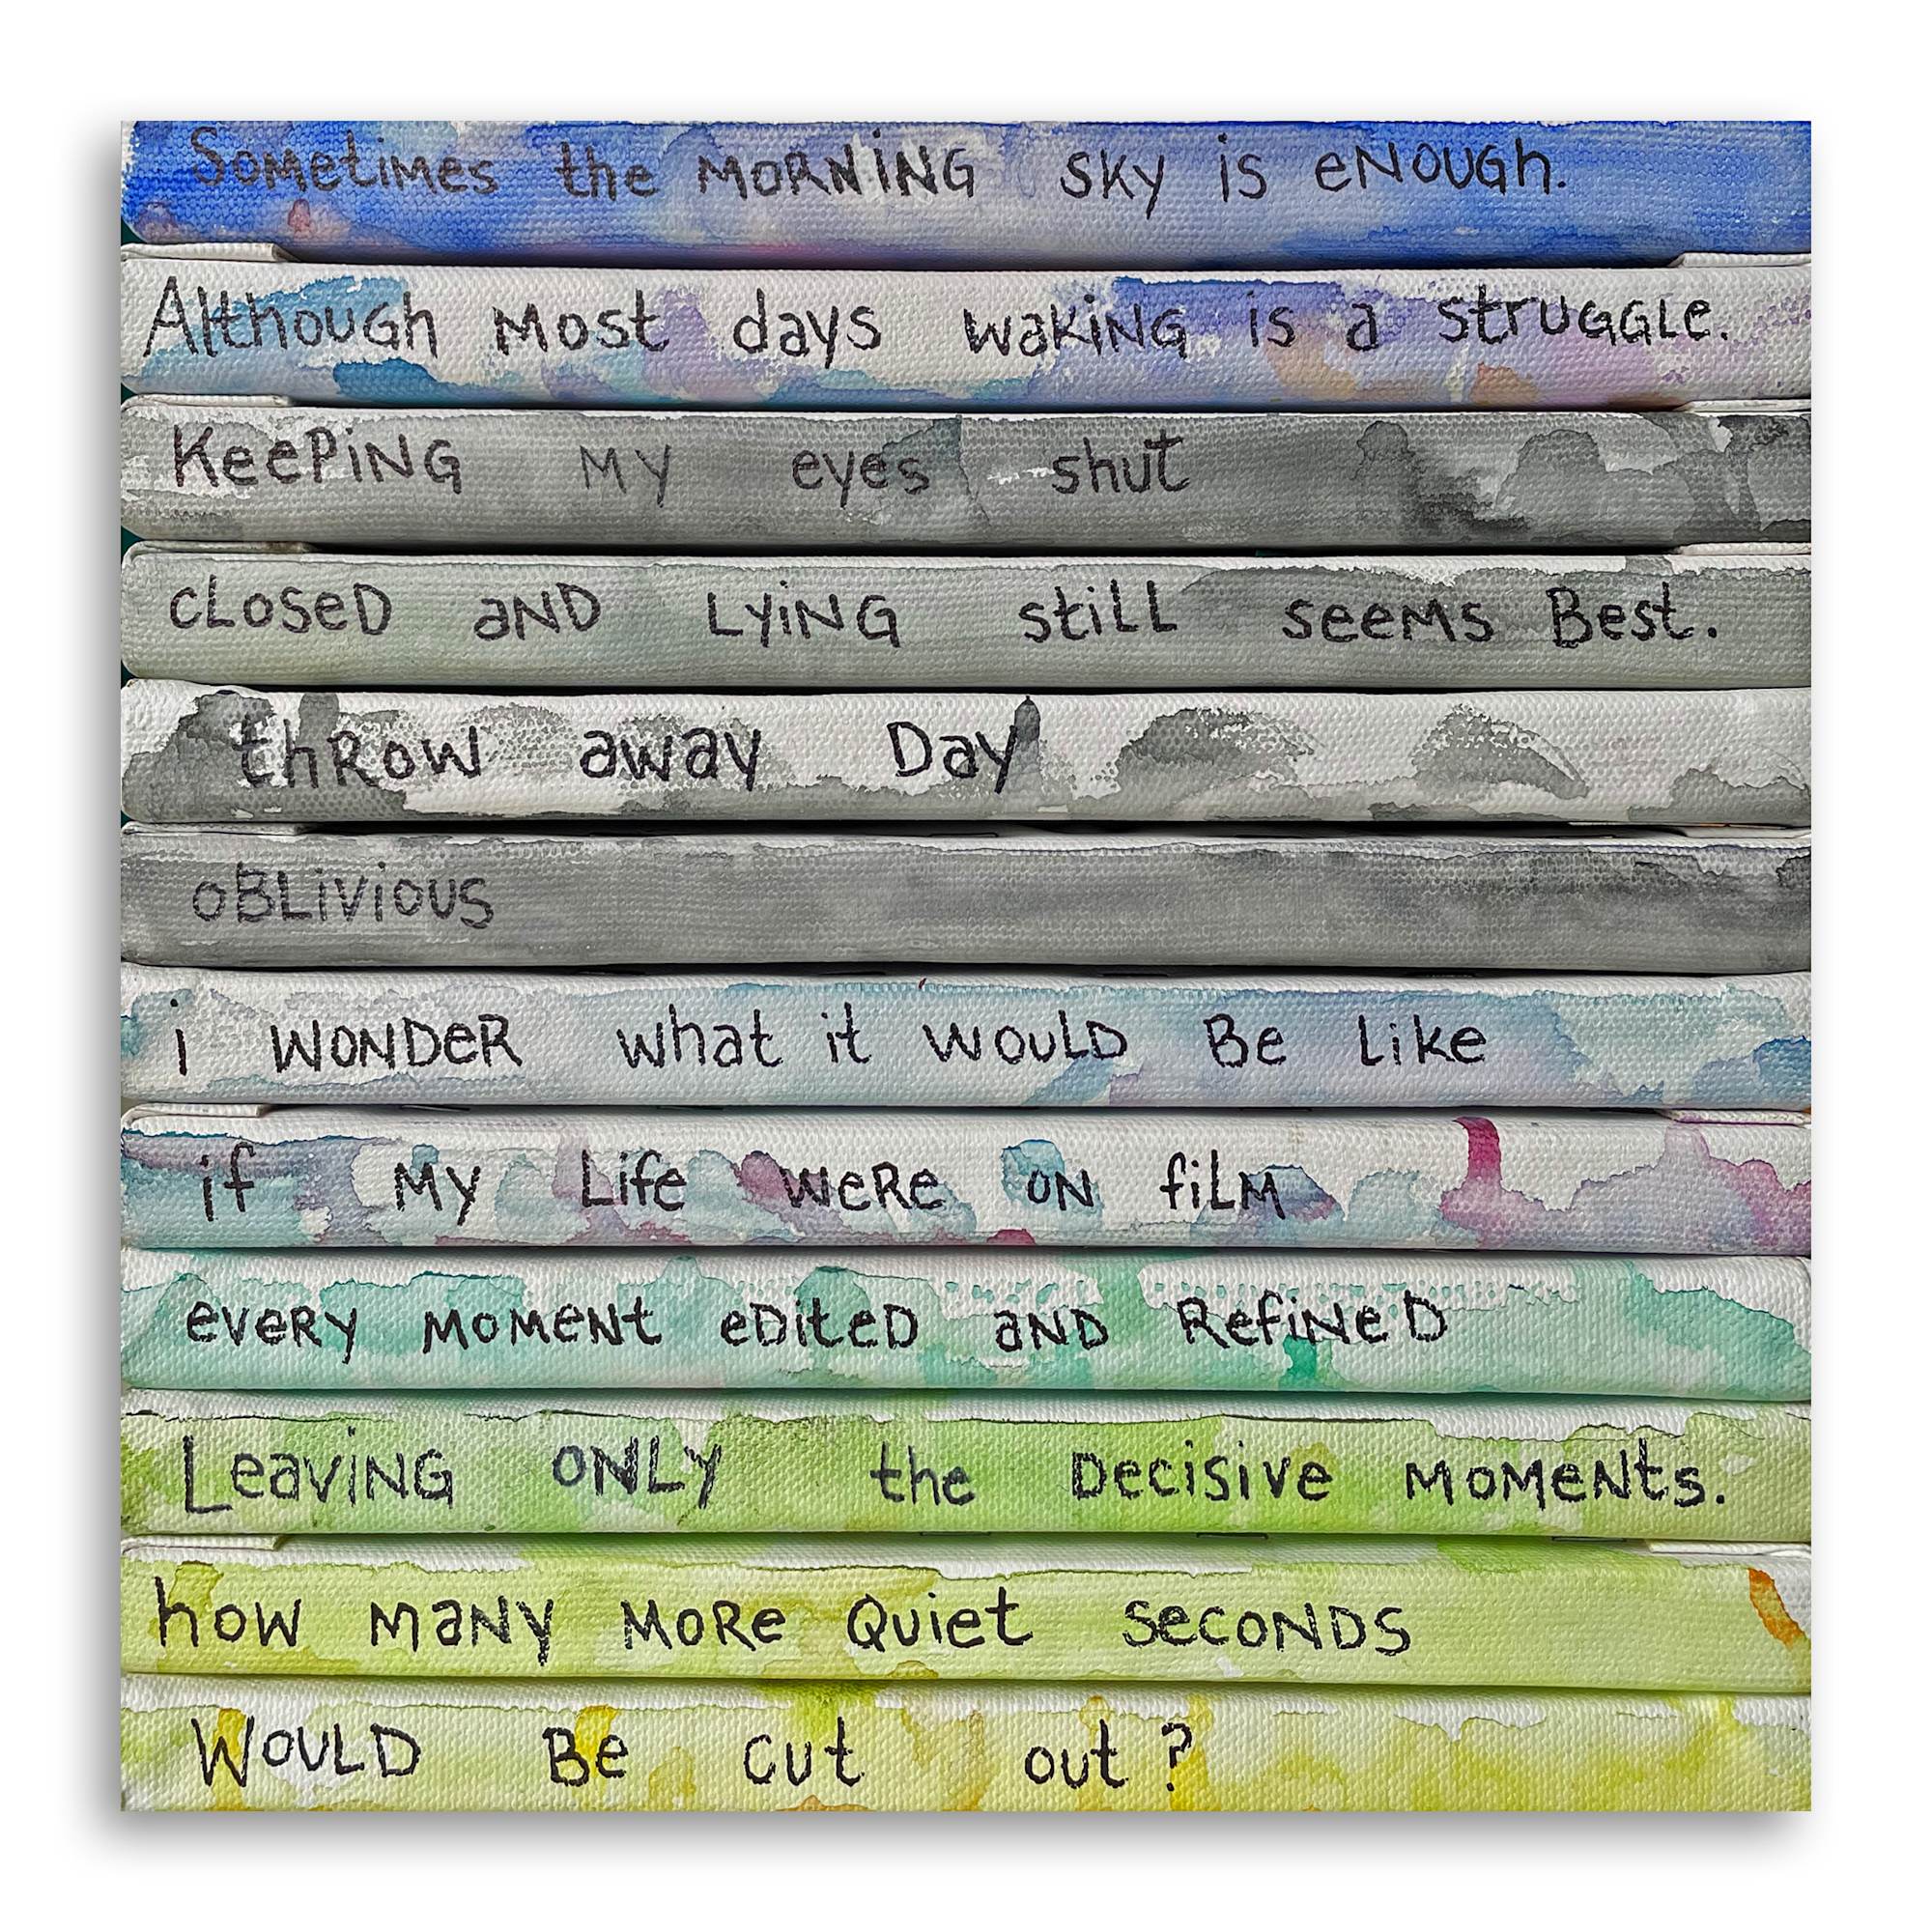 Sometimes the MORNING sky is eNOUGh.
Although Most days waKiNG is a struGGLe.
KeePiNG My eyes shut
cLoseD aND LyiNG stiLL seeMs Best.
thRow away Day
oBLivious
i WONDeR what it WouLD Be Like
if My Life weRe oN fiLM
eveRy MoMeNt eDiteD aND RefiNeD
LeaviNG ONLy the Decisive MoMeNts.
how MaNy MoRe Quiet SecoNDS
WouLD Be cut out?